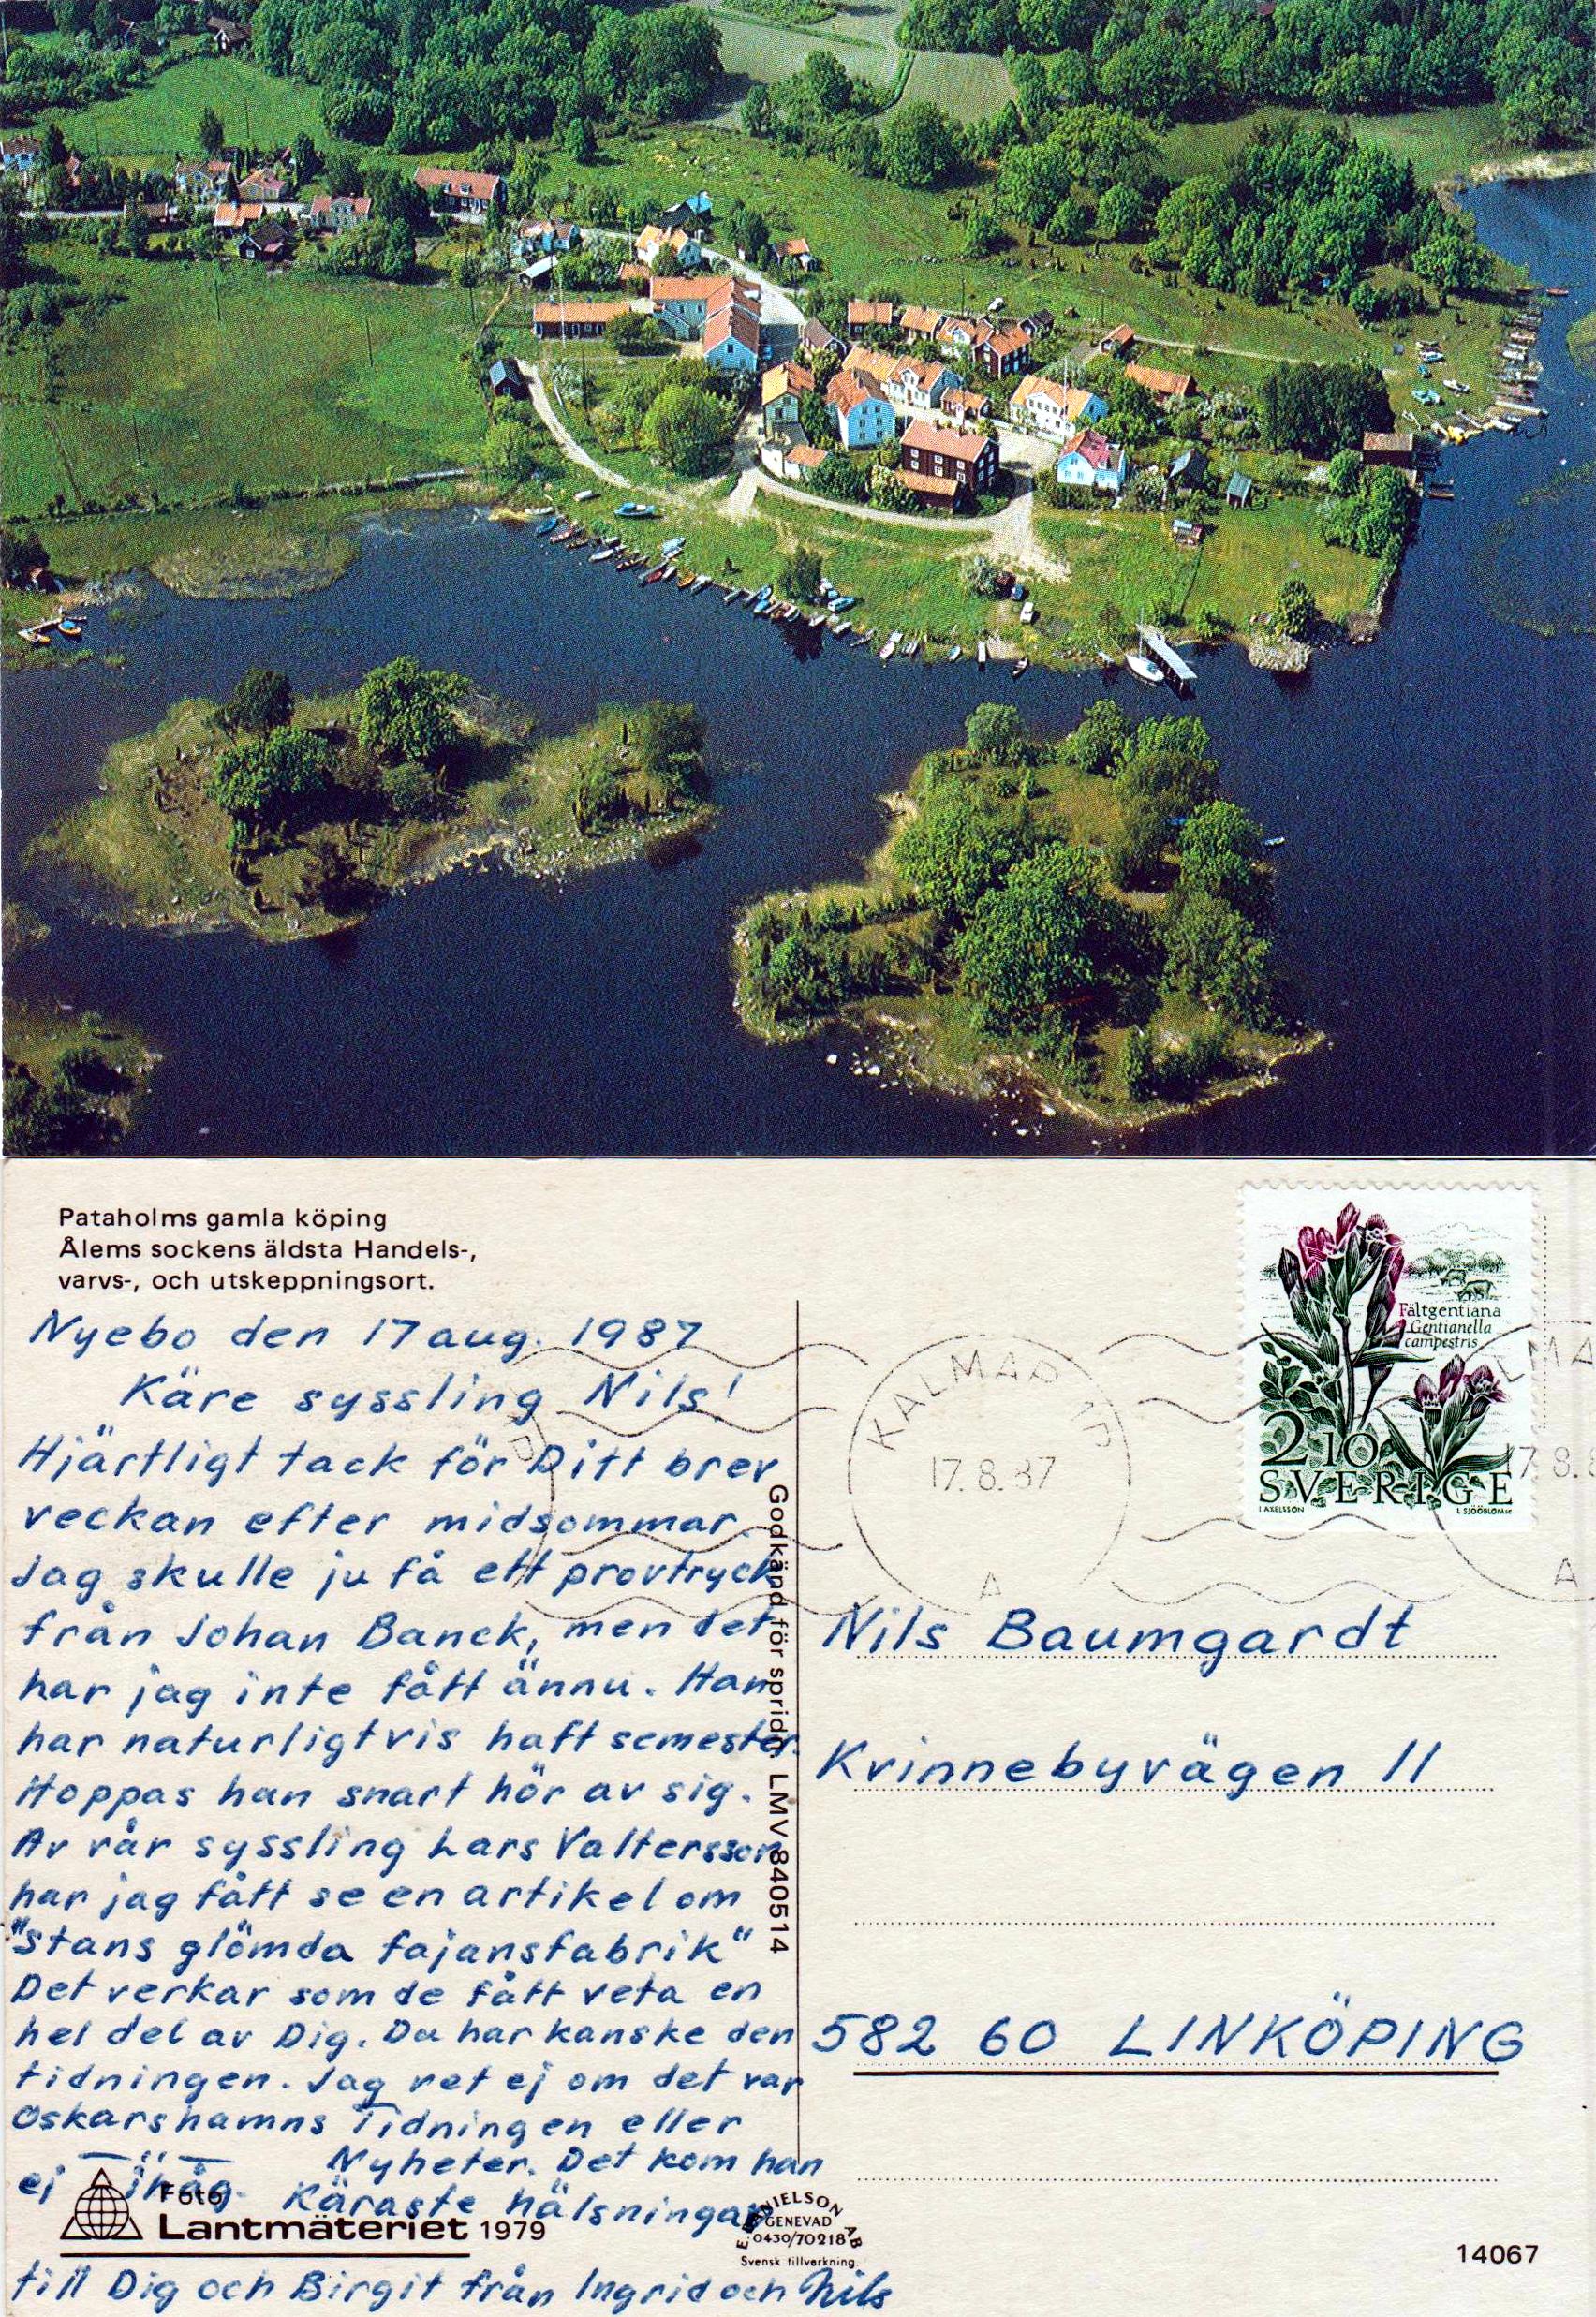 Pataholms gamla köping
Ålems sockens äldsta Handels-,
varvs-, och utskeppningsort.
Nyebo den 17 aug. 1987
Käre syssling Nils!
Hjärtligt tack för Ditt brev
veckan efter midsommar.
Jag skulle ju få ett provtryck
från Johan Banck, men det
har jag inte fått ännu. Han
har naturligtvis haft semester.
Hoppas han snart hör av sig.
Av vår syssling Lars Valtersson
har jag fått se en artikel om
"Stans glömda fajansfabrik"
Det verkar som de fått veta en
hel del av Dig. Du har kanske den
tidningen. Jag vet ej om det var
Oskarshamns Tidningen eller
— " — Nyheter. Det kom han
ej ihåg. Käraste hälsningar
till Dig och Birgit från Ingrid och Nils
Foto
Lantmäteriet 1979
Godkänd för spridn. LMV 840514
DANIELSON
GENEVAD
0430/70218
AB
Svensk tillverkning.
KALMAR
17.8.87
A
Fältgentiana
Gentianella
campestris
2 10
SVERIGE
I. AXELSSON
L. SJÖÖBLOM sc
17.8.8
A
Nils Baumgardt
Krinnebyvägen 11
582 60 LINKÖPING
14067